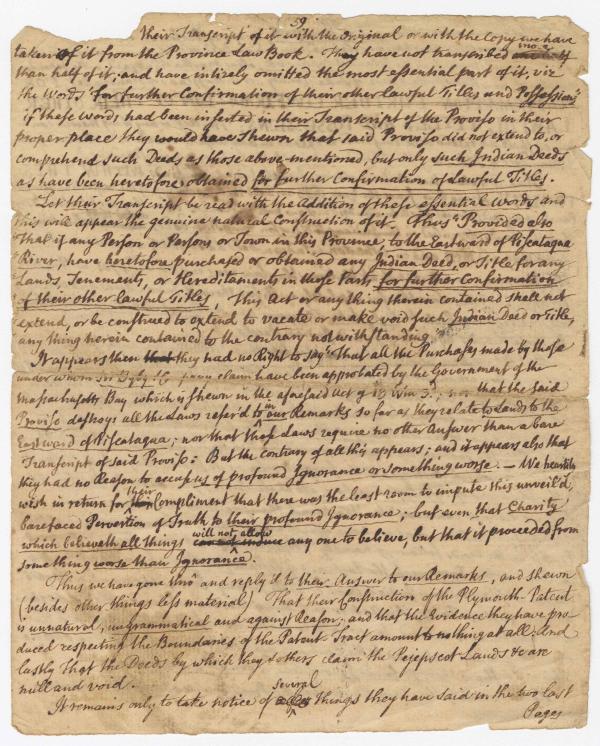 59
their Transcript of it with the Original or with the Copy we have
taken of it from the Province Law Book. They have not transcribed more
than half of it; and have intirely omitted the most essential part of it, viz
the Words "for further Confirmation of their other lawful Titles and Possessions"
if these words had been inserted in their Transcript of the Proviso in their
proper place they would have shewn that said Proviso did not extend to, or
comprehend such Deeds as those above-mentioned, but only such Indian Deeds
as have been heretofore obtained for further Confirmation of Lawful Titles.
Let their Transcript be read with the Addition of these essential Words and
this will appear the genuine natural Construction of it Thus "Provided also
That if any Person or Persons or Town in this Province, to the Eastward of Piscataqua
River, have heretofore purchased or obtained any Indian Deed, or Title for any
Lands, Tenements, or Hereditaments in those Parts, for further Confirmation
of their other lawful Titles, This Act or any thing therein contained shall not
extend, or be construed to extend to vacate or make void such Indian Deed or Title,
any thing herein contained to the contrary not withstanding"
It appears then that they had no Right to say "that all the Purchases made by those
under whom claim have been approbated by the Government of the
Massachusetts Bay which is shewn in the aforesaid Act of 13 Wm 3d; nor that the said
Proviso destroys all the Laws refer'd to in our Remarks so far as they relate to Lands to the
Eastward of Piscataqua; nor that these Laws require no other Answer than a bare
Transcript of said Proviso: But the contrary of all this appears; and it appears also that
they had no Reason to accuse us of profound Ignorance or something worse. — We heartily
wish in return for their Compliment that there was the least room to impute this unveil'd,
barefaced Perversion of Truth to their profound Ignorance; but even that Charity
which believeth all things will not allow any one to believe, but that it proceeded from
something worse than Ignorance.
Thus we have gone thro' and reply'd to their Answer to our Remarks, and shewn
(besides other things less material) That their Construction of the Plymouth Patent
is unnatural, ungrammatical and against Reason; and that the Evidence they have pro
duced respecting the Boundaries of the Patent Tract amount to nothing at all; And
lastly That the Deeds by which they & others claim the Pejepscot Lands &c are
null and void.
It remains only to take notice of several things they have said in the two last
Pages